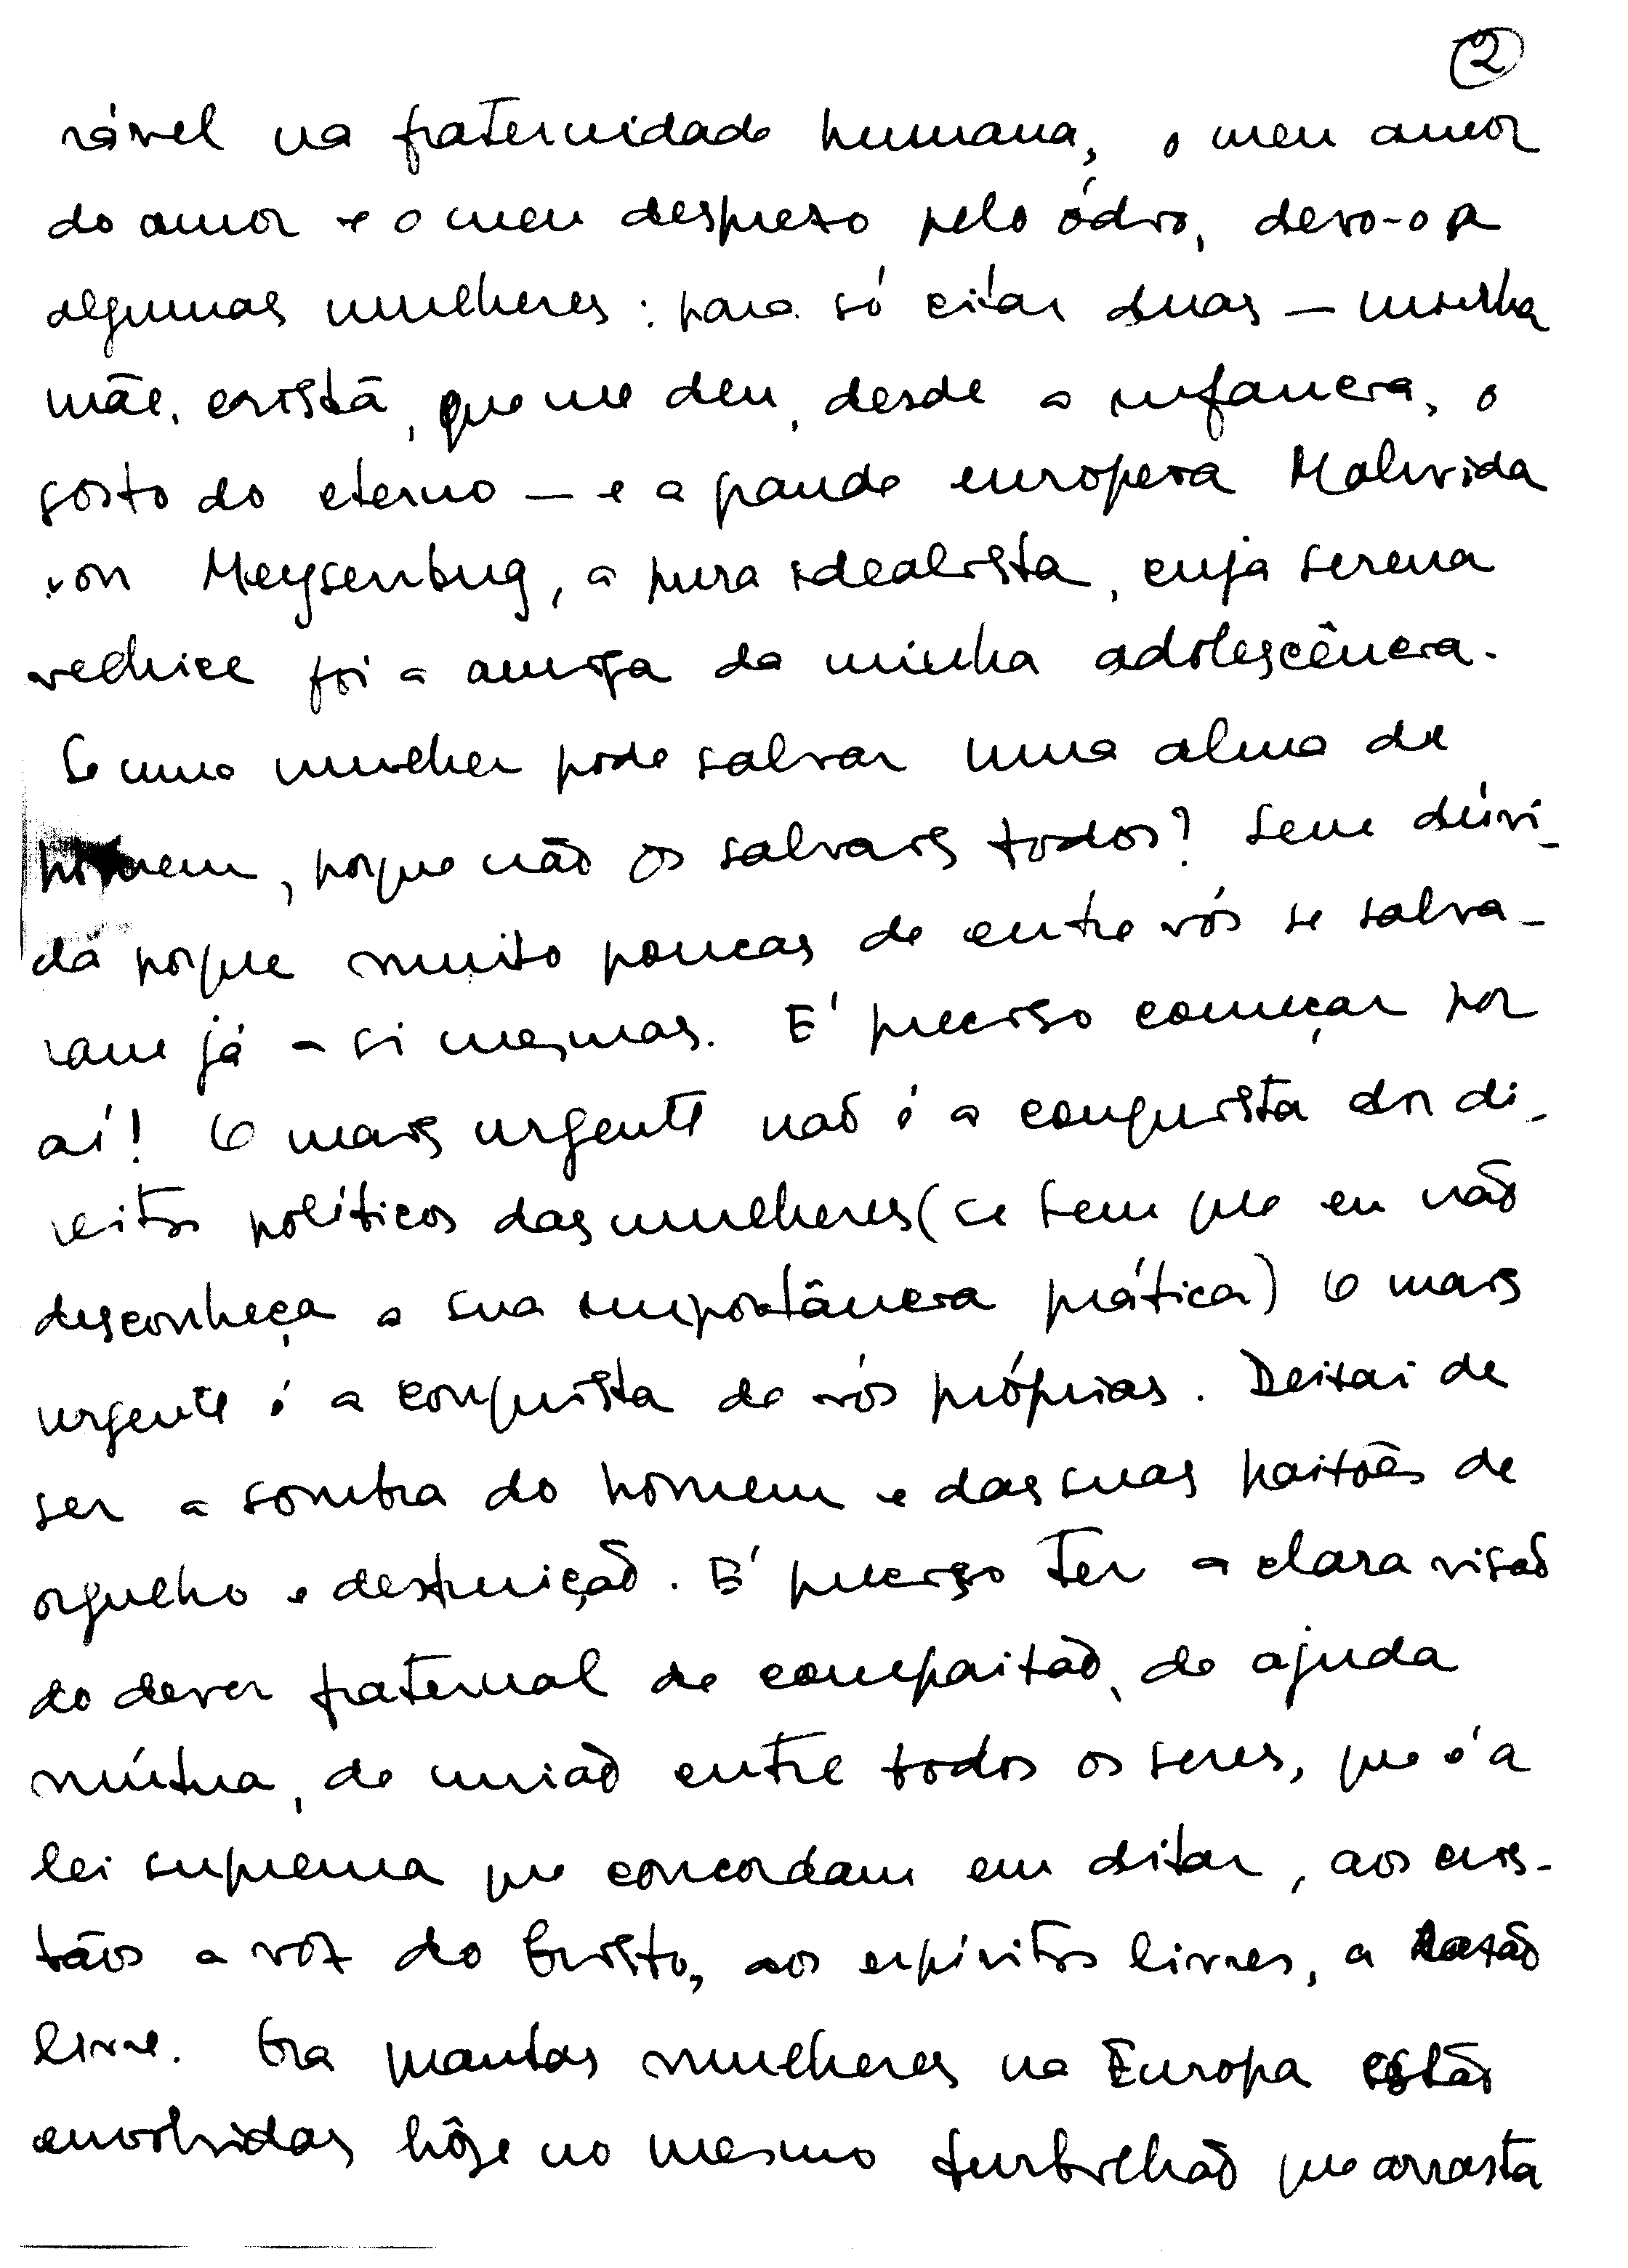 2
rável na fraternidade humana, o meu amor
do amor e o meu desprezo pelo ódio, devo-o a
algumas mulheres: para só citar duas — minha
mãe, cristã, que me deu, desde a infancia, o
gosto do eterno — e a grande europeia Malvida
von Meysenbug, a pura idealista, cuja serena
velhice foi a amiga da minha adolescência.
Se uma mulher pode salvar uma alma de
homem, porque não os salvais todos? Sem dúvi-
da porque muito poucas de entre vós se salva-
ram já a si mesmas. E' preciso começar por
aí! O mais urgente não é a conquista dos di-
reitos políticos das mulheres (se bem que eu não
desconheça a sua importância prática) O mais
urgente é a conquista de vós próprias. Deixai de
ser a sombra do homem e das suas paixões de
orgulho e destruição. E' preciso ter a clara visão
do dever fraternal de compaixão, de ajuda
mútua, de união entre todos os seres, que é a
lei suprema que concordam em ditar, aos cris-
tãos a voz do Cristo, aos espíritos livres, a razão
livre. Ora quantas mulheres na Europa estão
envolvidas hôje no mesmo turbilhão que arrasta